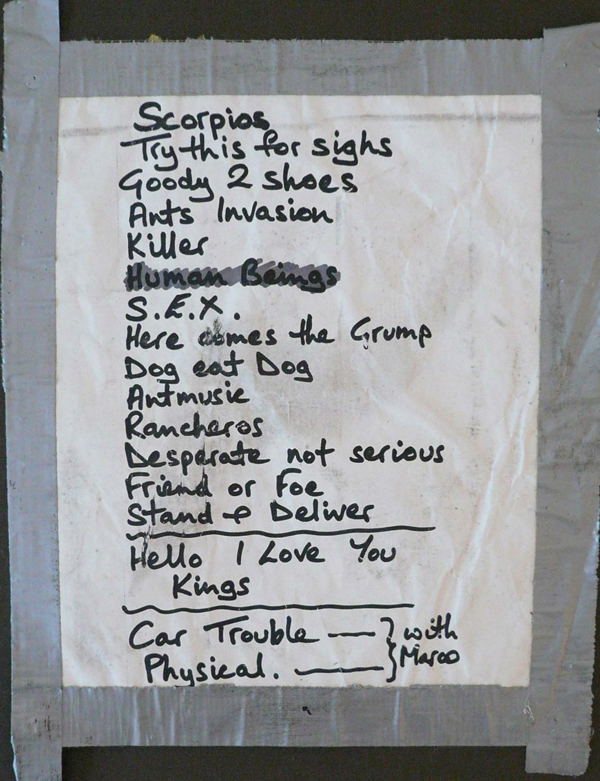 Scorpios
Try this for sighs
Goody 2 shoes
Ants Invasion
Killer
Human Beings
S.E.X.
Here comes the Grump
Dog eat Dog
Antmusic
Rancheros
Desperate not serious
Friend or Foe
Stand & Deliver
Hello I Love You
Kings
Car Trouble — } with
Physical. — } Marco